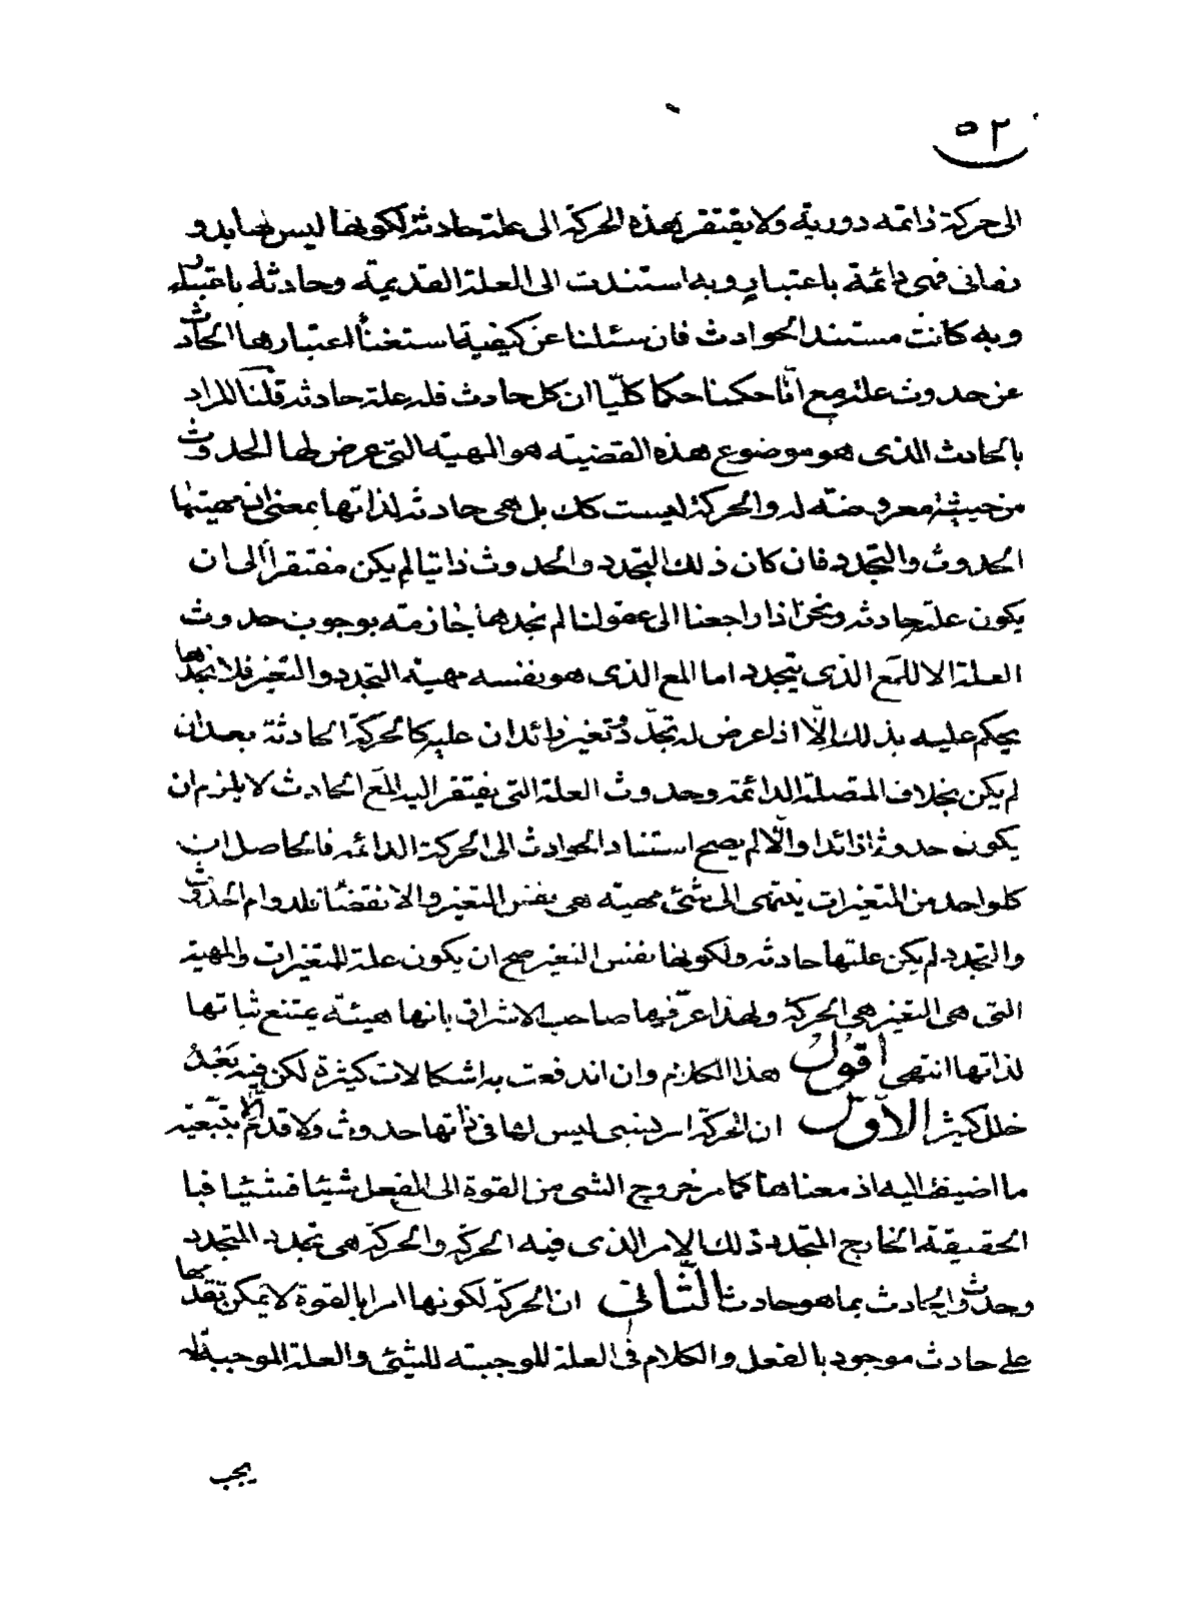 ٥٢
الى حركة دائمه دورية ولا يفتقر هذه الحركة الى علة حادثة لكونها ليس لها بدو
زمانى فهى دائمة باعتبار وبه استندت الى العلة القديمة وحادثة باعتبار
وبه كانت مستند الحوادث فان سئلنا عن كيفية استغناء اعتبارها الحادث
عن حدوث علة مع انّا حكمنا حكما كلّيا ان كل حادث فله علة حادثه قلنا المراد
بالحادث الذى هو موضوع هذه القضيته هو المهيته التى عرض لها الحدوث
من حيث معروضته له والحركة ليست كك بل هى حادثه لذاتها بمعنى ان مهيتها
الحدوث والتجدد فان كان ذلك التجدد والحدوث ذاتيا لم يكن مفتقراً الى ان
يكون علته حادثه ونحن اذا راجعنا الى عقولنا لم نجدها جازمته بوجوب حدوث
العلة الا للمع الذى يتجدد اما المع الذى هو نفسه مهية التجدد والتغير فلا نجدها
يحكم عليه بذلك الّا اذا عرض له تجدّد وتغير زائدان عليه كالحركة الحادثة بعد ان
لم يكن بخلاف المتصلة الدائمة وحدوث العلة التى يفتقر اليه المع الحادث لا يلزم ان
يكون حدوثا زائدا والّا لم يصح استناد الحوادث الى الحركة الدائمه فالحاصل ان
كلواحد من المتغيرات ينتهى الى شئ مهيته هى نفس التغير والانقضاء فلدوام الحدوث
والتجدد لم يكن علتها حادثه ولكونها نفس التغير صح ان يكون علة المتغيرات والمهية
التى هى التغير هى الحركة ولهذا عرّفها صاحب الاشراق بانها هيئة يمتنع ثباتها
لذاتها انتهى أقول هذا الكلام وان اندفعت به اشكالات كثيرة لكن فيه بَعْدُ
خلل كثير الاوّل ان الحركة امر نسبى ليس لها فى ذاتها حدوث ولا قدم الّا بتبعيّة
ما اضيف اليه اذ معناها كما مر خروج الشى من القوة الى الفعل شيئا فشيئا فبا
الحقيقة الخارج المتجدد ذلك الامر الذى فيه الحركة والحركة هى تجدد المتجدد
وحدوث الحادث بما هو حادث الثانى ان الحركة لكونها امرا بالقوة لا يمكن تقدمها
على حادث موجود بالفعل والكلام فى العلة الموجبته للشئى والعلة الموجبة له
يجب